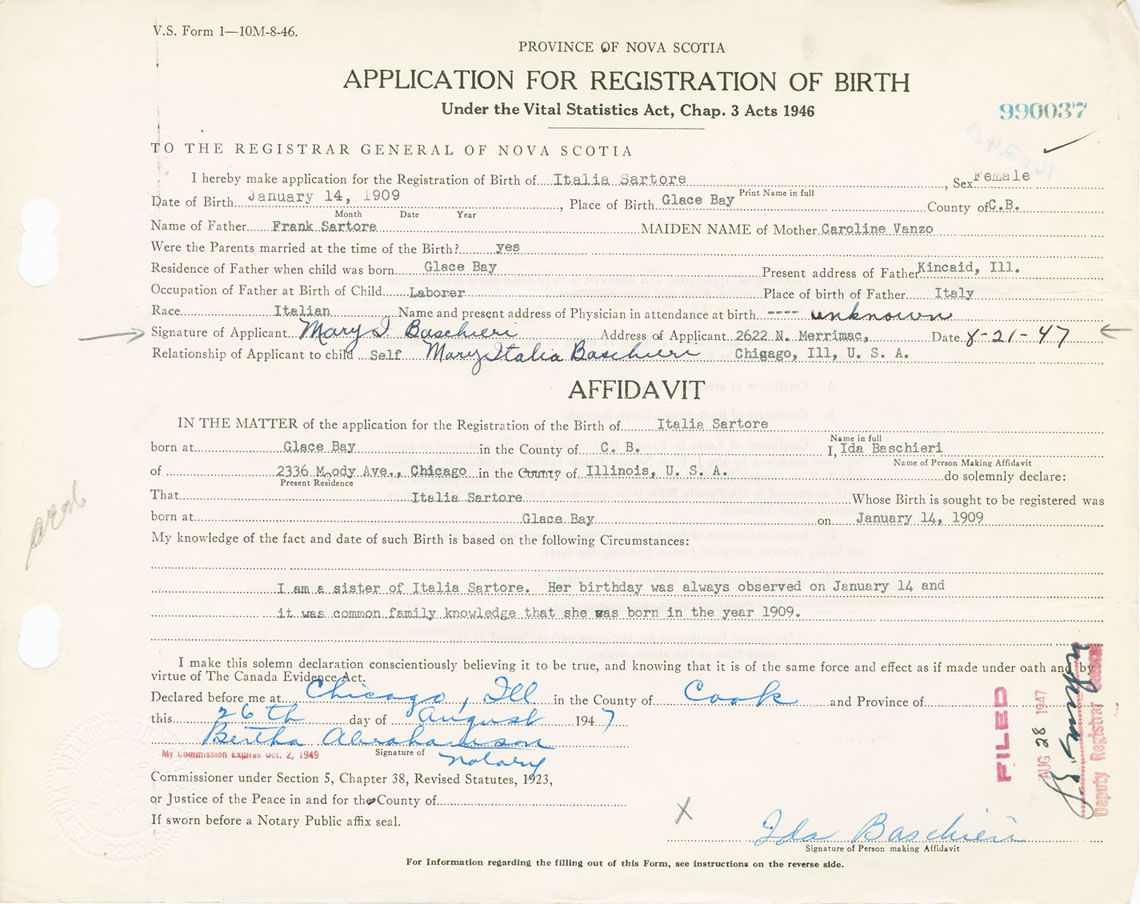 V.S. Form 1—10M-8-46.
PROVINCE OF NOVA SCOTIA
APPLICATION FOR REGISTRATION OF BIRTH
Under the Vital Statistics Act, Chap. 3 Acts 1946
990037
TO THE REGISTRAR GENERAL OF NOVA SCOTIA
I hereby make application for the Registration of Birth of Italia Sartore, Sex Female
Print Name in full
Date of Birth January 14, 1909, Place of Birth Glace Bay County of C.B.
Month Date Year
Name of Father Frank Sartore MAIDEN NAME of Mother Caroline Vanzo
Were the Parents married at the time of the Birth? yes
Residence of Father when child was born Glace Bay Present address of Father Kincaid, Ill.
Occupation of Father at Birth of Child Laborer Place of birth of Father Italy
Race Italian Name and present address of Physician in attendance at birth ---- unknown
Signature of Applicant Mary I. Baschieri Address of Applicant 2622 N. Merrimac, Date 8-21-47
Relationship of Applicant to child Self Mary Italia Baschieri Chicago, Ill, U. S. A.
AFFIDAVIT
IN THE MATTER of the application for the Registration of the Birth of Italia Sartore
Name in full
born at Glace Bay in the County of C. B. I, Ida Baschieri
Name of Person Making Affidavit
of 2336 Moody Ave., Chicago in the County of Illinois, U. S. A. do solemnly declare:
Present Residence
That Italia Sartore Whose Birth is sought to be registered was
born at Glace Bay on January 14, 1909
My knowledge of the fact and date of such Birth is based on the following Circumstances:
I am a sister of Italia Sartore. Her birthday was always observed on January 14 and
it was common family knowledge that she was born in the year 1909.
I make this solemn declaration conscientiously believing it to be true, and knowing that it is of the same force and effect as if made under oath and by
virtue of The Canada Evidence Act.
Declared before me at Chicago, Ill in the County of Cook and Province of
this 26th day of August 1947
Bertha Abrahamson
My Commission Expires Oct. 2, 1949 Signature of Notary
Commissioner under Section 5, Chapter 38, Revised Statutes, 1923,
or Justice of the Peace in and for the County of
If sworn before a Notary Public affix seal.
X Ida Baschieri
Signature of Person making Affidavit
For Information regarding the filling out of this Form, see instructions on the reverse side.
FILED
AUG 28 1947
Deputy Registrar